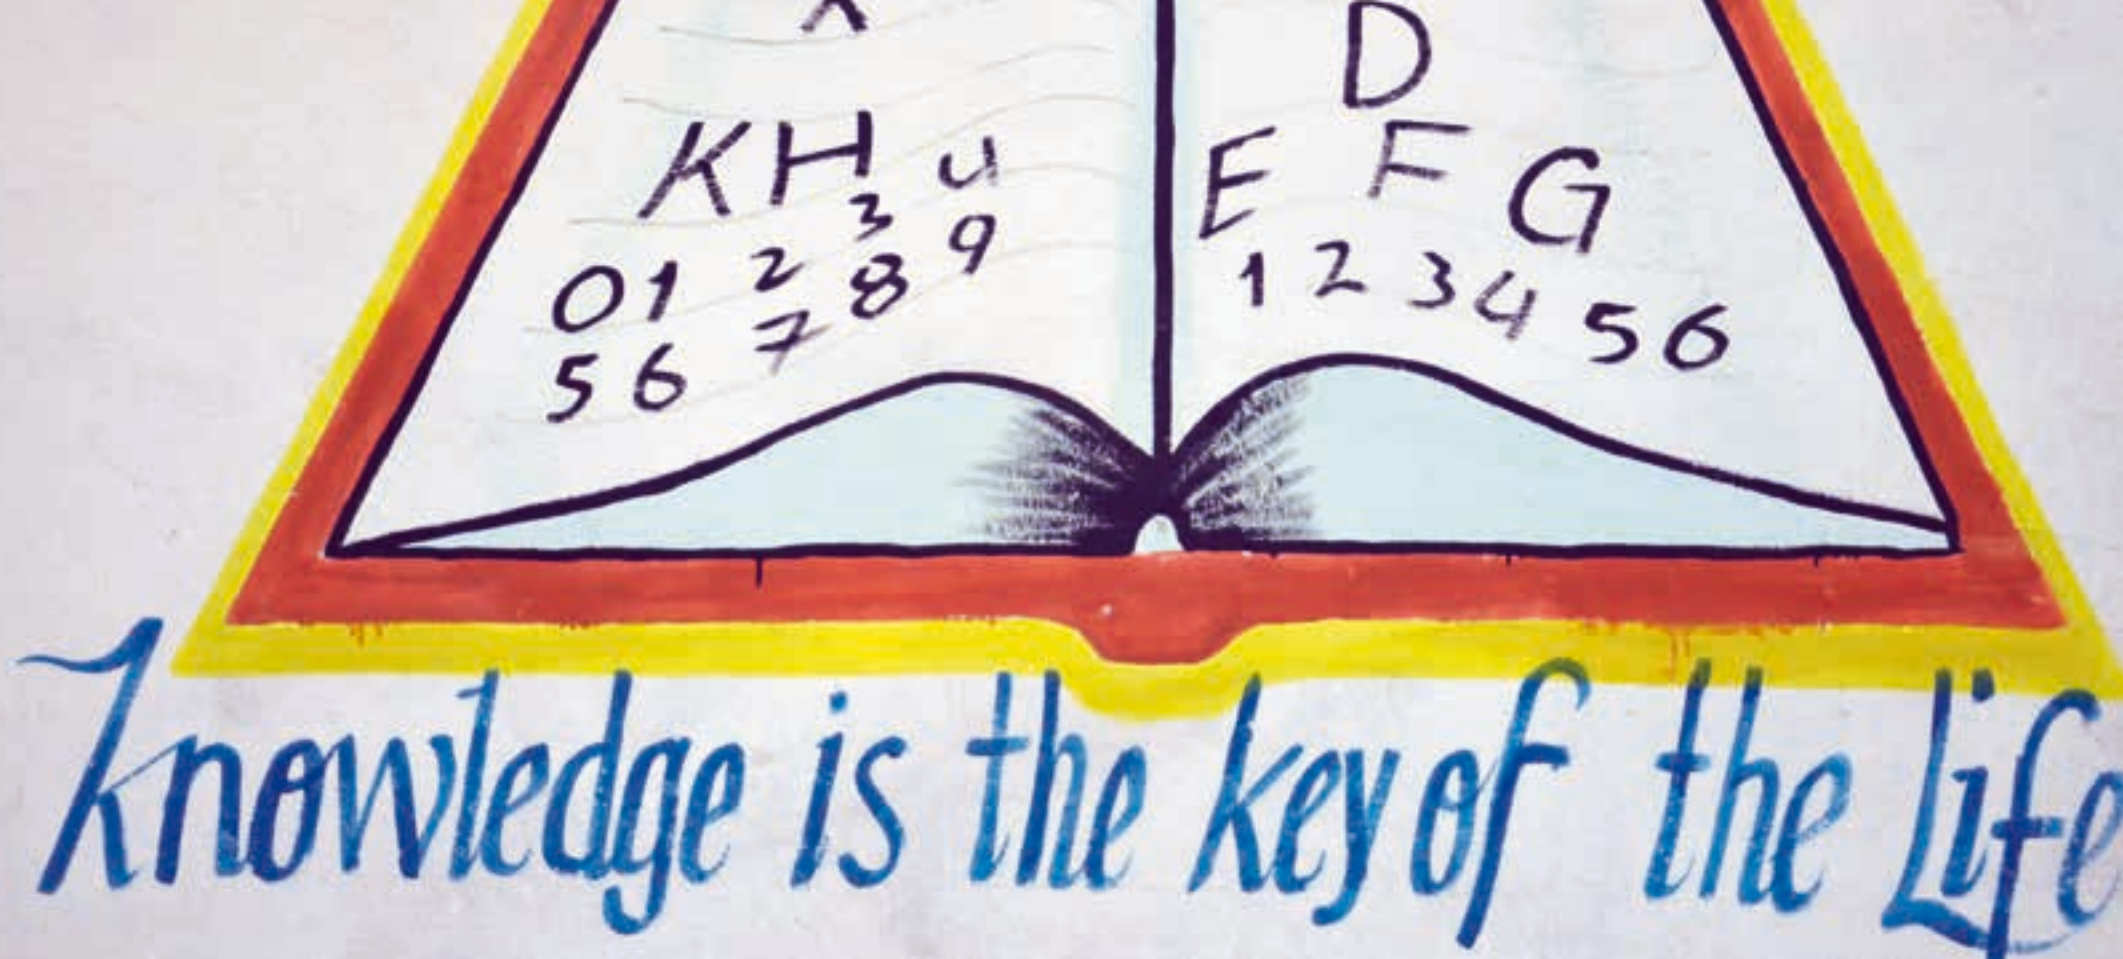 K H u
0 1 2 3
5 6 7 8 9
D
E F G
1 2 3 4 5 6
Knowledge is the key of the Life